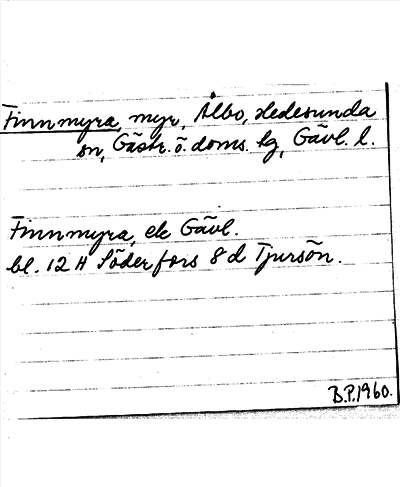 Finnmyra, myr, Ålbo, Hedesunda
sn, Gästr. ö. doms. hg, Gävl. l.
Finnmyra, ek Gävl.
bl. 12 H Söderfors 8 d Tjursön.
B.P.1960.